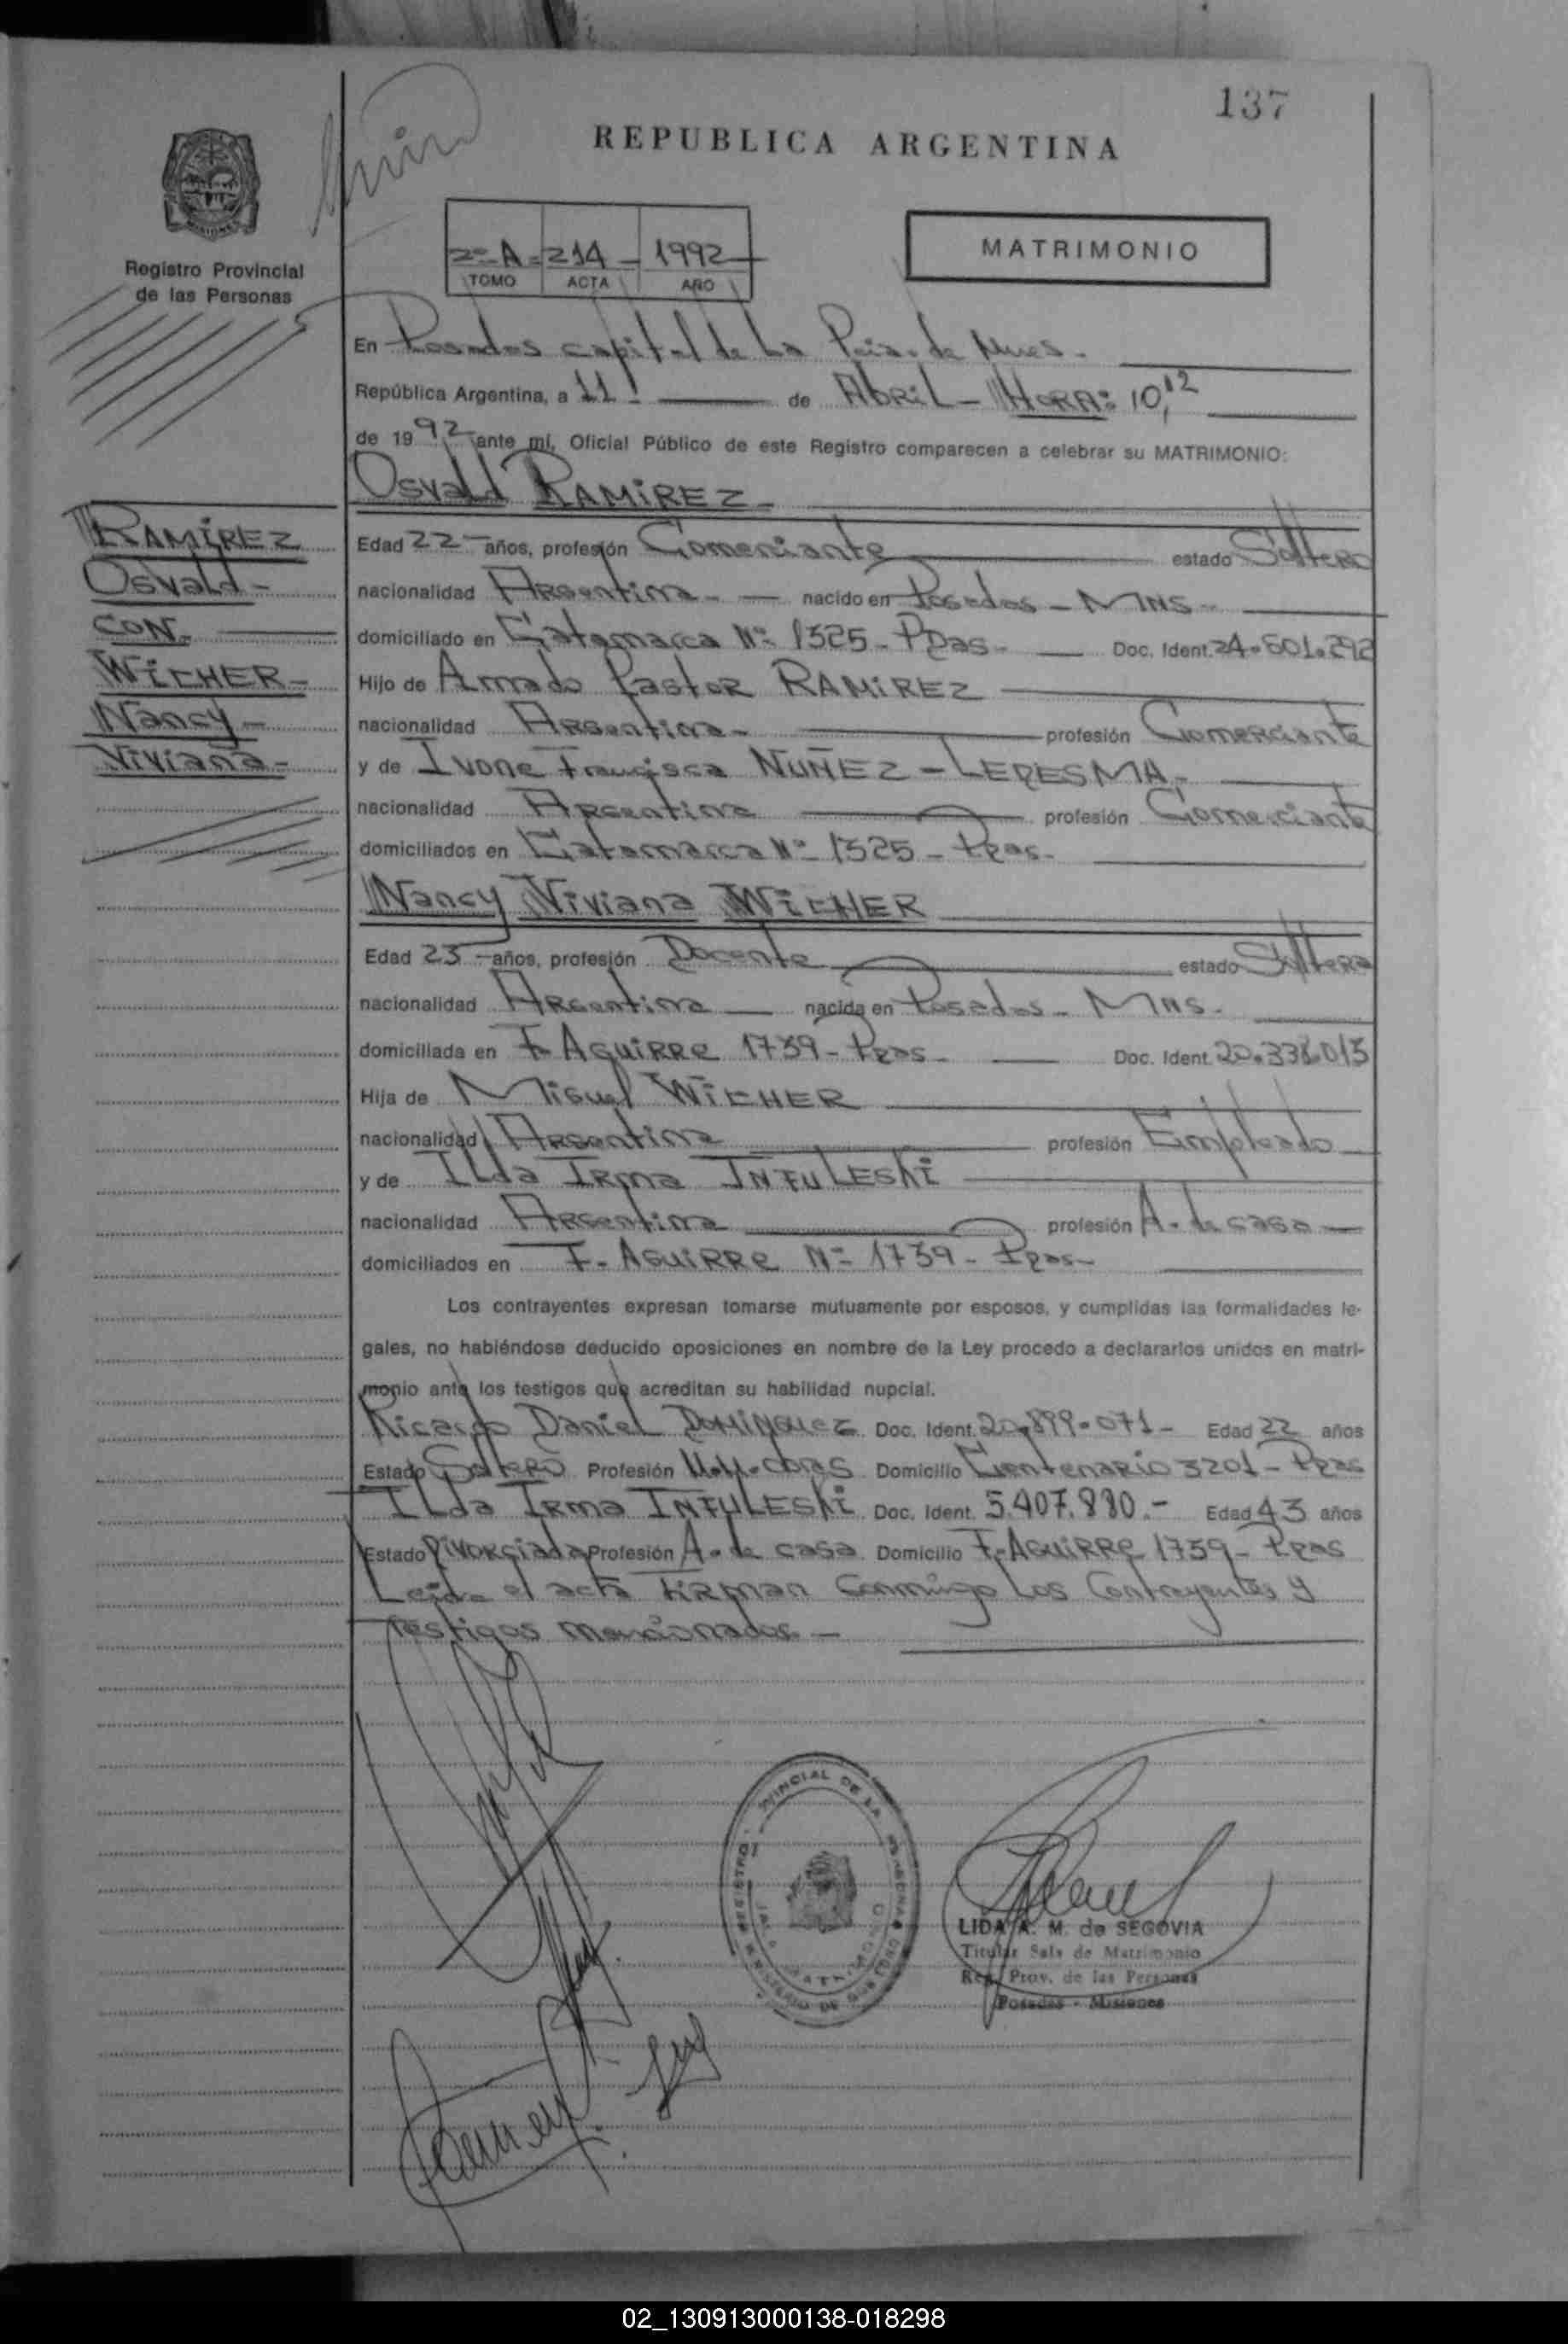 137
REPUBLICA ARGENTINA
MISIONES
Registro Provincial
de las Personas
2º-A-214-1992
TOMO ACTA AÑO
MATRIMONIO
En Posadas capital de La Pcia. de Mnes.
República Argentina, a 11 de Abril - HORA: 10,12
de 1992 ante mí, Oficial Público de este Registro comparecen a celebrar su MATRIMONIO:
Osvald RAMIREZ-
RAMIREZ
Osvald-
CON.
WICHER-
Nancy-
Viviana-
Edad 22 años, profesión Comerciante estado Soltero
nacionalidad Argentina- nacido en Posadas - MNS-
domiciliado en Catamarca Nº 1325- Ppas- Doc. Ident. 24.601.292
Hijo de Amado Pastor RAMIREZ
nacionalidad Argentina- profesión Comerciante
y de Ivone Francisca NUÑEZ - LEDESMA-
nacionalidad Argentina profesión Comerciante
domiciliados en Catamarca Nº 1325- Ppas-
Nancy Viviana WICHER
Edad 23 años, profesión Docente estado Soltera
nacionalidad Argentina nacida en Posadas- MNS-
domiciliada en F. Aguirre 1739- Ppas- Doc. Ident. 20.338.013
Hija de Miguel WICHER
nacionalidad Argentina profesión Empleado
y de ILda Irma INFULESKI
nacionalidad Argentina profesión A. de casa
domiciliados en F. Aguirre Nº 1739- Ppas-
Los contrayentes expresan tomarse mutuamente por esposos, y cumplidas las formalidades le-
gales, no habiéndose deducido oposiciones en nombre de la Ley procedo a declararlos unidos en matri-
monio ante los testigos que acreditan su habilidad nupcial.
Ricardo Daniel DOMINGUEZ Doc. Ident. 20.899.071- Edad 22 años
Estado Soltero Profesión Domicilio Centenario 3201- Ppas
ILda Irma INFULESKI Doc. Ident. 5.407.880.- Edad 43 años
Estado Divorciada Profesión A. de casa Domicilio F. Aguirre 1739- Ppas
Leida el acta firman conmigo los contrayentes y
testigos mencionados-
LIDA A. M. de SEGOVIA
Titular Sala de Matrimonio
Reg. Prov. de las Personas
Posadas - Misiones
02_130913000138-018298